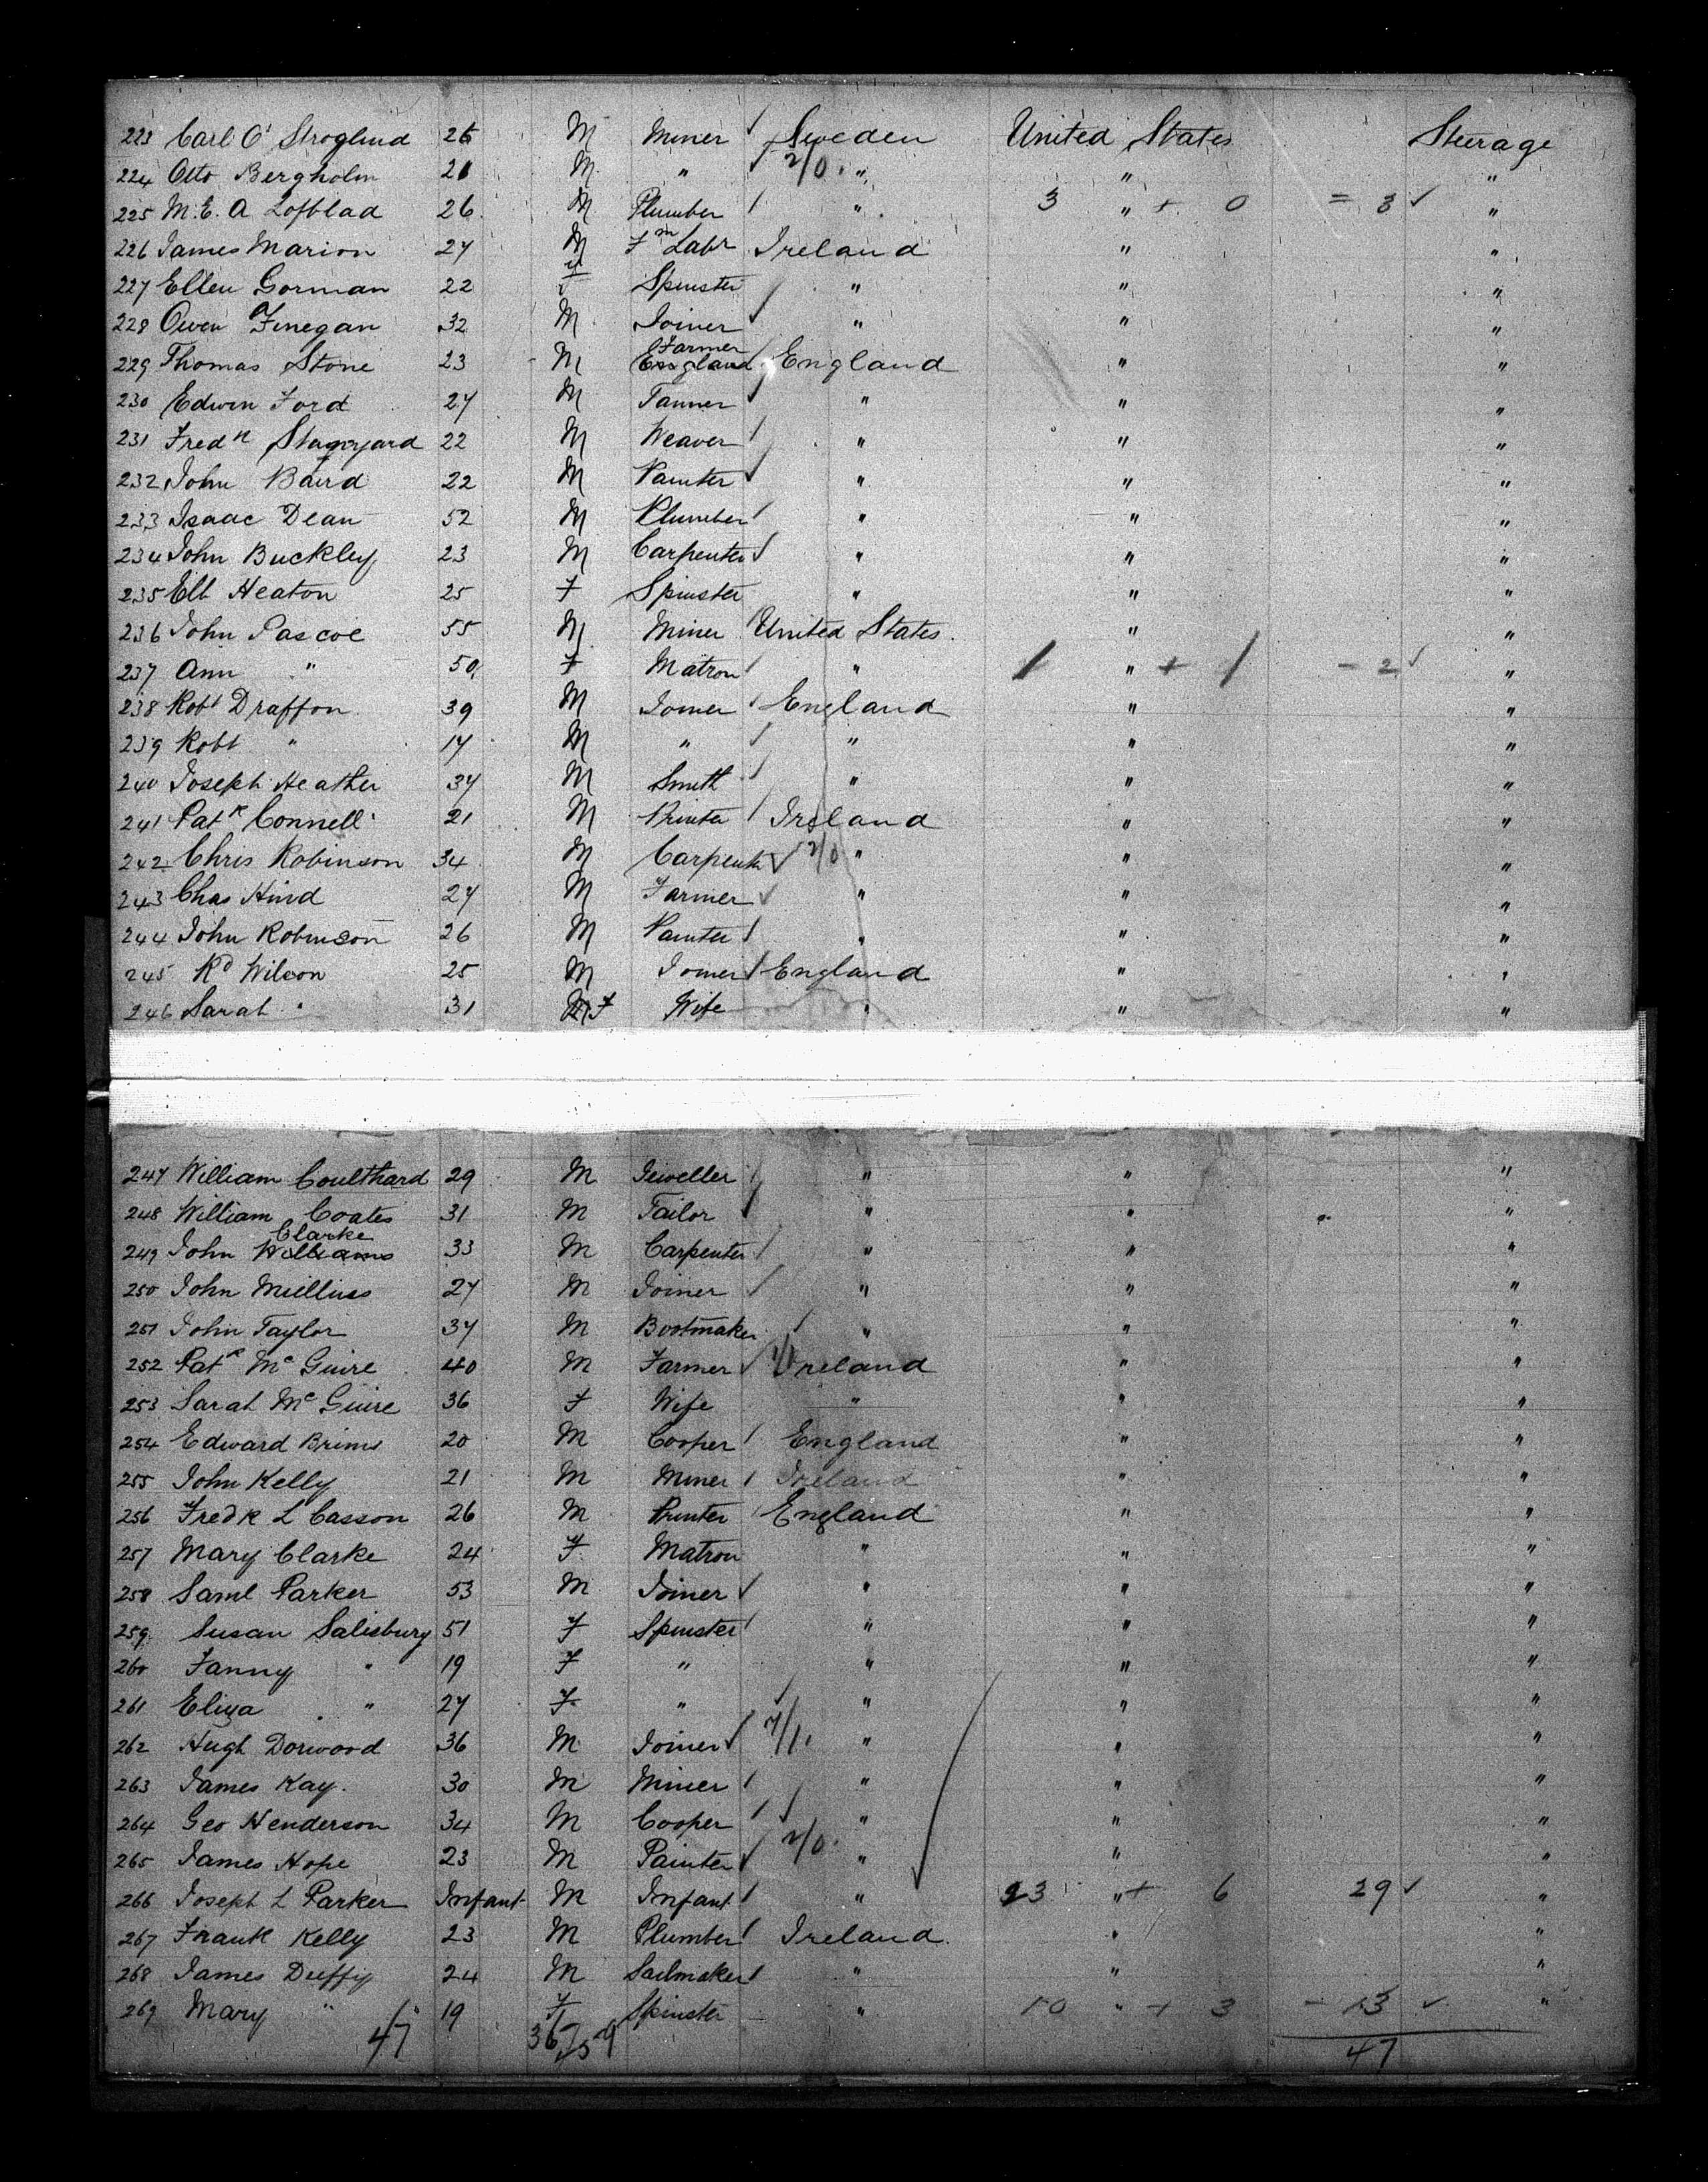 223 Carl O' Stroglund 25 M Miner Sweden United States Steerage
224 Otto Bergholm 21 M " 2/0 " " "
225 M. E. A Lofblad 26 M Plumber " 3 " + 0 = 3 "
226 James Marion 27 M Fm Labr Ireland " "
227 Ellen Gorman 22 F Spinster " " "
228 Owen Finegan 32 M Joiner " " "
229 Thomas Stone 23 M Farmer England England " "
230 Edwin Ford 27 M Tanner " " "
231 Fredk Stagnyard 22 M Weaver " " "
232 John Baird 22 M Painter " " "
233 Isaac Dean 52 M Plumber " " "
234 John Buckley 23 M Carpenter " " "
235 Ell Heaton 25 F Spinster " " "
236 John Pascoe 55 M Miner United States " "
237 Ann " 50 F Matron " 1 " + 1 - 2 "
238 Robt Draffon 39 M Joiner England " "
239 Robt " 17 M " " " "
240 Joseph Heather 37 M Smith " " "
241 Patk Connell 21 M Printer Ireland " "
242 Chris Robinson 34 M Carpenter 2/0 " " "
243 Chas Hind 27 M Farmer " " "
244 John Robinson 26 M Painter " " "
245 Rd Wilson 25 M Joiner England " "
246 Sarah " 31 F Wife " " "
247 William Coulthard 29 M Jeweller " " "
248 William Coates 31 M Tailor " " "
249 John Williams Clarke 33 M Carpenter " " "
250 John Mulliss 27 M Joiner " " "
251 John Taylor 37 M Bootmaker " " "
252 Patk Mc Guire 40 M Farmer Ireland " "
253 Sarah Mc Guire 36 F Wife " " "
254 Edward Brims 20 M Cooper England " "
255 John Kelly 21 M Miner Ireland " "
256 Fredk L Casson 26 M Printer England " "
257 Mary Clarke 24 F Matron " " "
258 Saml Parker 53 M Joiner " " "
259 Susan Salisbury 51 F Spinster " " "
260 Fanny " 19 F " " " "
261 Eliza " 27 F " " " "
262 Hugh Dorwood 36 M Joiner " " "
263 James Kay 30 M Miner " " "
264 Geo Henderson 34 M Cooper " " "
265 James Hope 23 M Painter 2/0 " " "
266 Joseph L Parker Infant M Infant " 23 " + 6 29 "
267 Frank Kelly 23 M Plumber Ireland " "
268 James Duffy 24 M Sailmaker " " "
269 Mary " 19 F Spinster " 10 " + 3 - 13 "
47 47